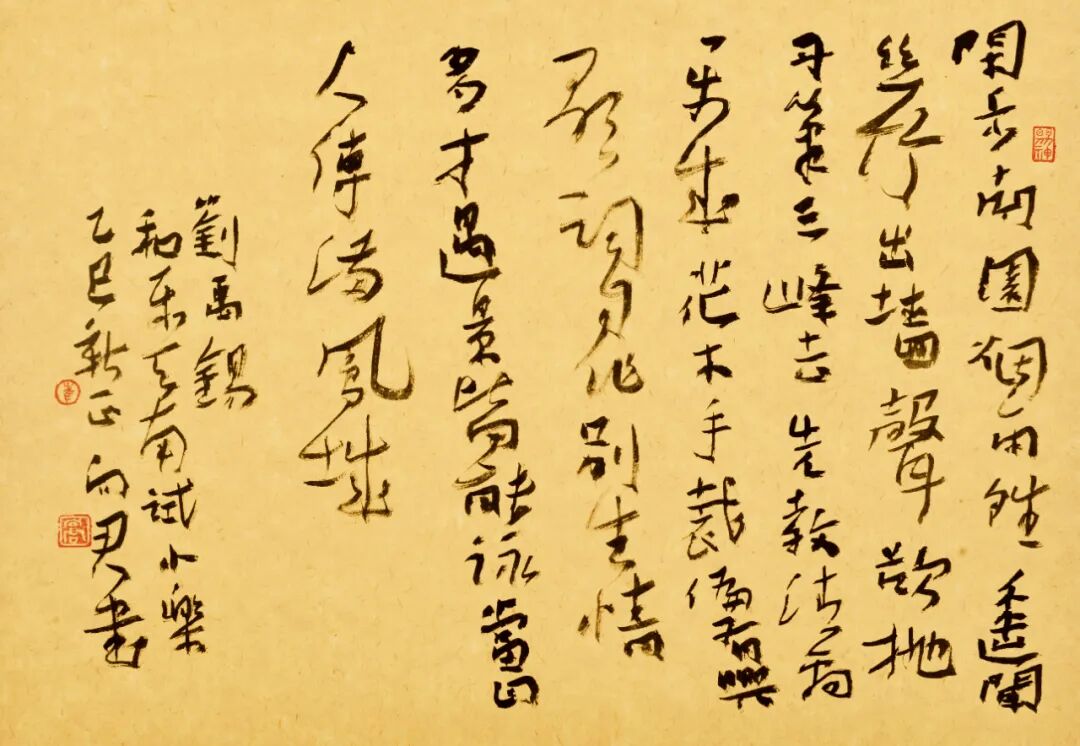 閑步南園烟雨晴遥聞
絲竹出墙聲欲抛
丹筆三峰去先教清商
一部成花木手栽偏有興
歌詞自作別生情
多才遇景皆能詠當日
人傳满鳳城
劉禹錫
和乐天南試小樂
乙巳新正 書